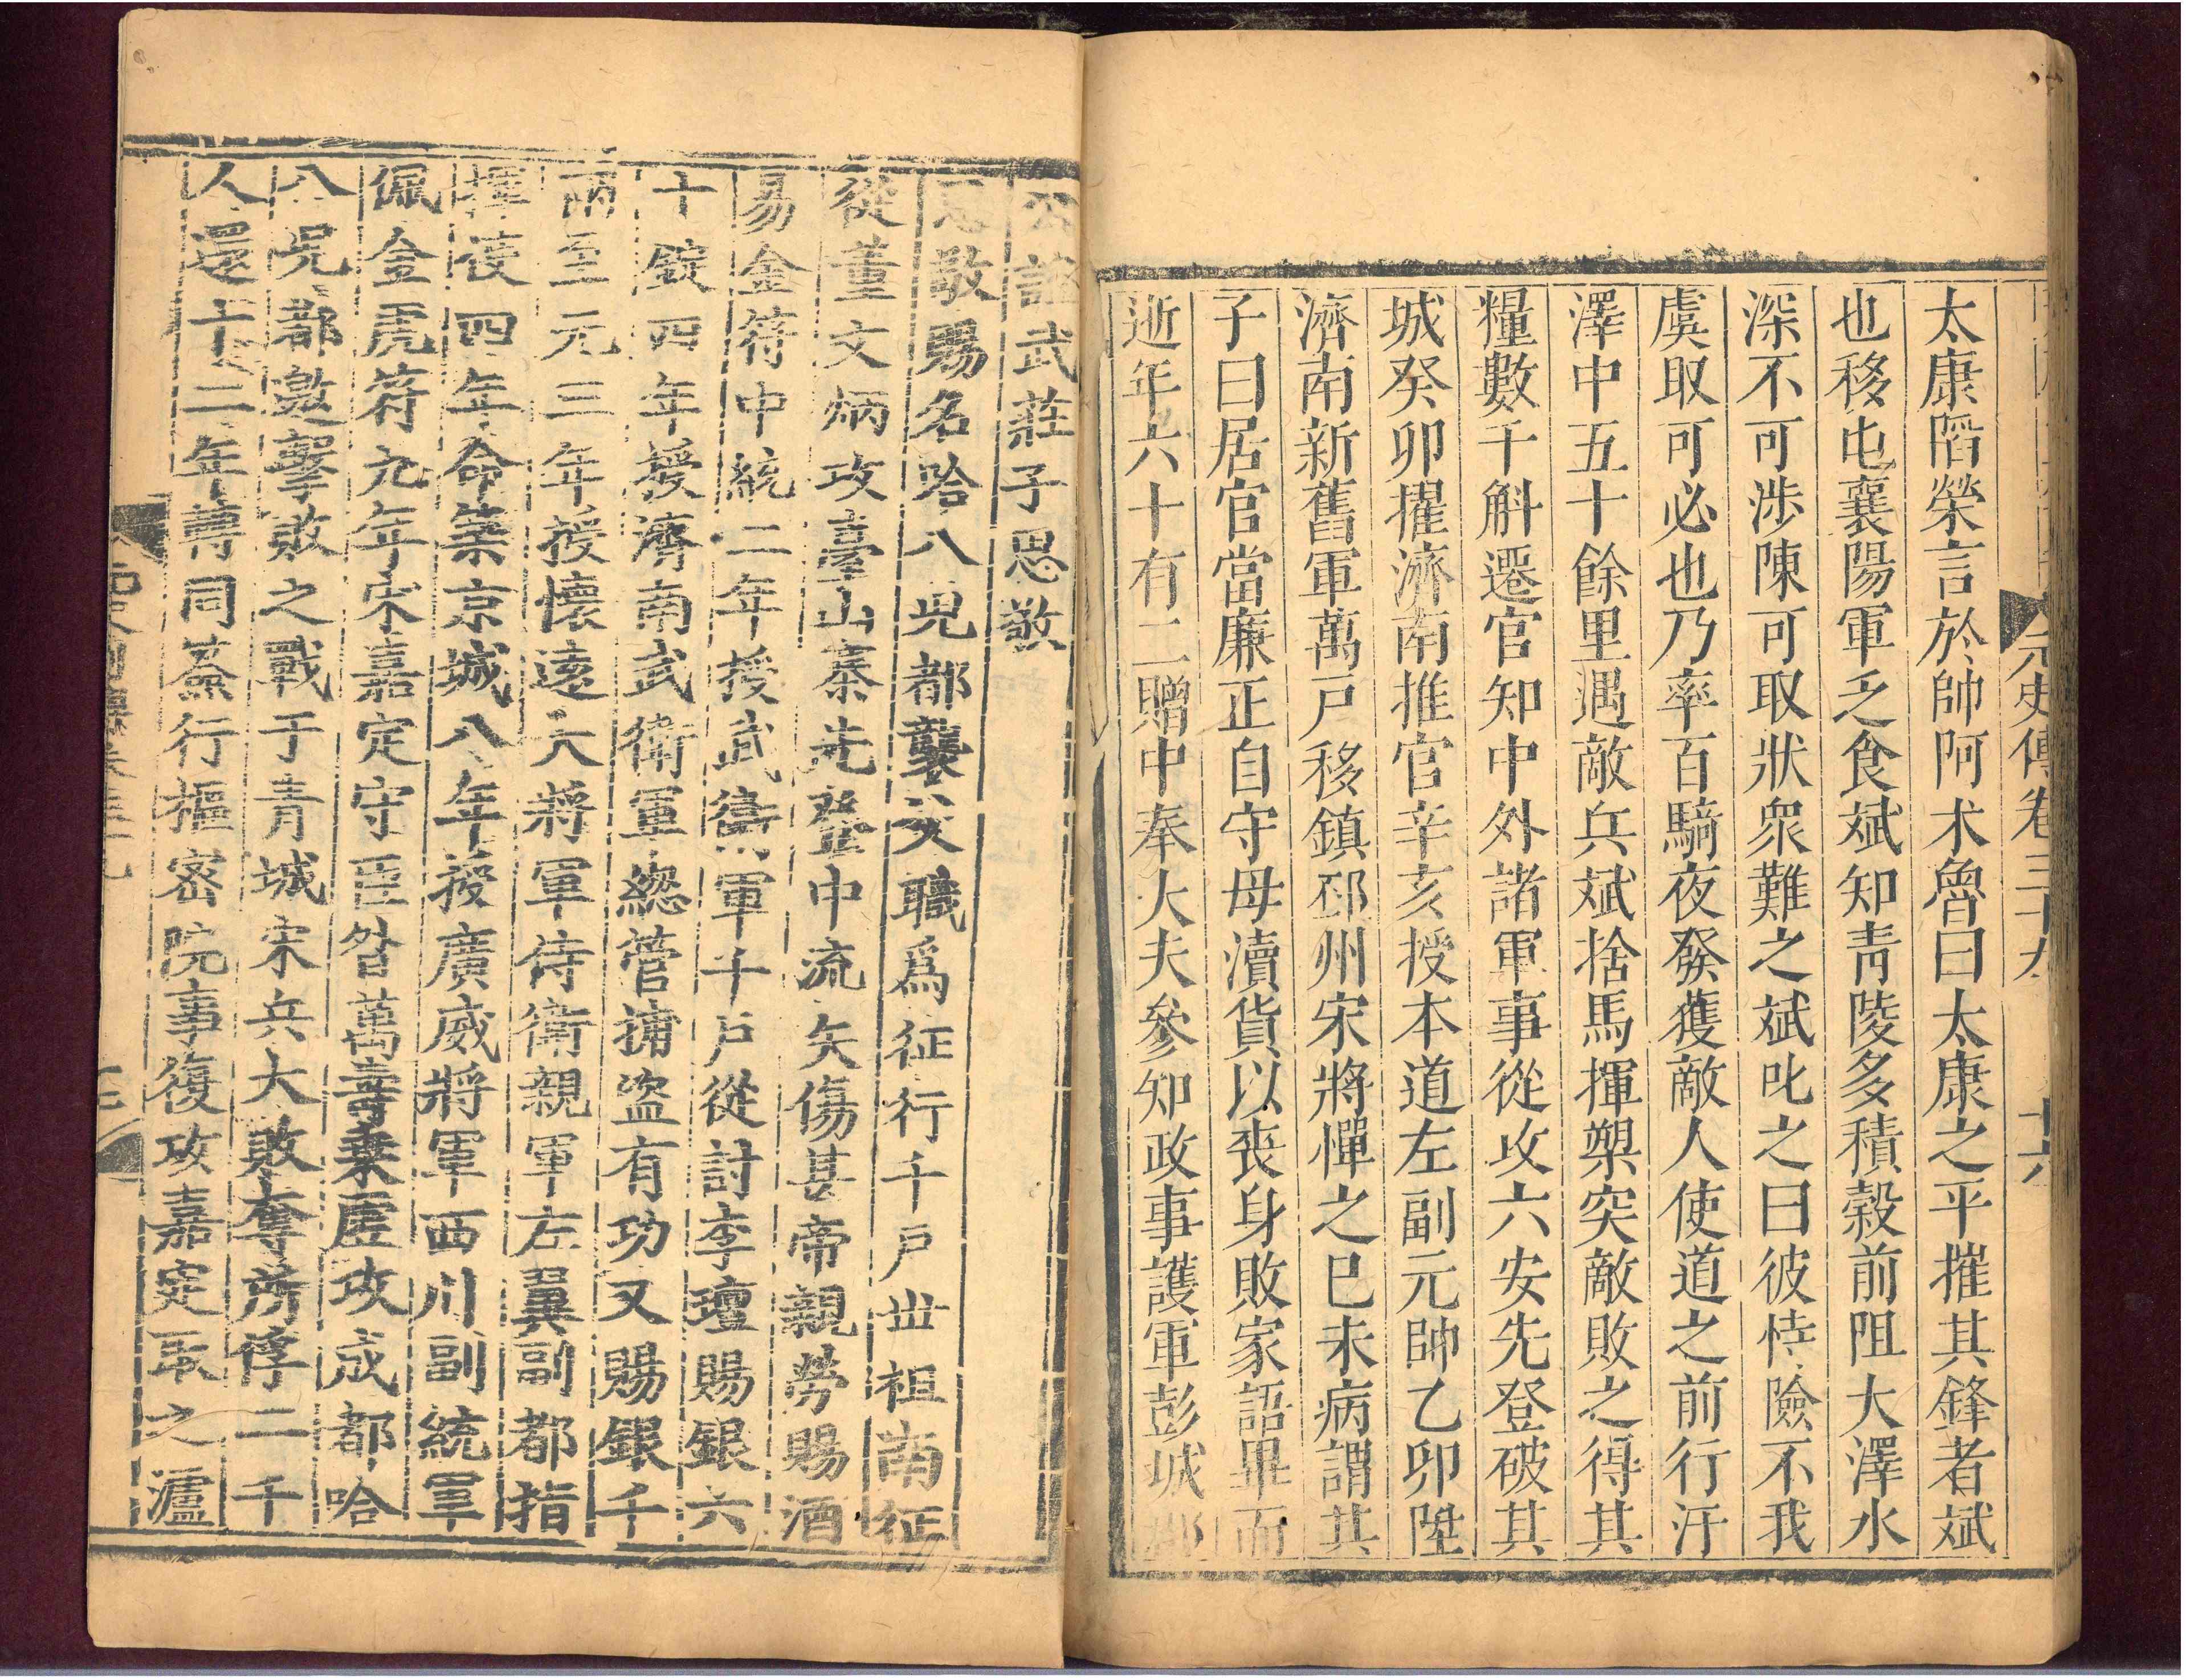 元史傳卷三十九 十六
太康陷榮言於帥阿朮魯曰太康之平摧其鋒者斌
也移屯襄陽軍乏食斌知青陵多積榖前阻大澤水
深不可涉陳可取狀衆難之斌叱之曰彼恃險不我
虞取可必也乃率百騎夜發獲敵人使道之前行汙
澤中五十餘里遇敵兵斌捨馬揮槊突敵敗之得其
糧數千斛遷官知中外諸軍事從攻六安先登破其
城癸卯擢濟南推官辛亥授本道左副元帥乙卯陞
濟南新舊軍萬戸移鎮邳州宋將憚之巳未病謂其
子曰居官當廉正自守毋瀆貨以喪身敗家語畢而
逝年六十有二贈中奉大夫參知政事護軍彭城郡
公諡武莊子思敬
思敬賜名哈八兒都襲父職爲征行千戸丗祖南征
從董文炳攻臺山寨先登中流矢傷甚帝親勞賜酒
易金符中統二年授武衛軍千戸從討李璮賜銀六
十錠四年授濟南武衛軍總管捕盜有功又賜銀千
兩至元三年授懷遠大將軍侍衛親軍左翼副都指
揮使四年命築京城八年授廣威將軍西川副統軍
佩金虎符九年宋嘉定守臣昝萬壽乗虛攻成都哈
八兒都邀擊敗之戰于青城宋兵大敗奪所俘二千
人還十二年轉同僉行樞密院事復攻嘉定取之瀘